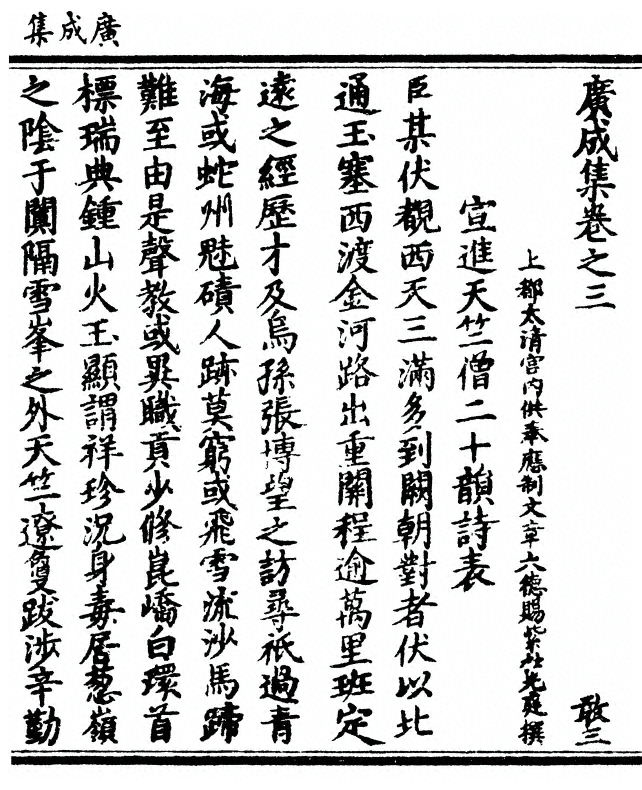 廣成集
廣成集卷之三
敢三
上都太清宮内供奉應制文章大德賜紫杜光庭撰
宣進天竺僧二十韻詩表
臣某伏覩西天三滿多到闕朝對者伏以北
通玉塞西渡金河路出重關程逾萬里班定
遠之經歷才及烏孫張博望之訪尋祇過青
海或蛇州魅磧人跡莫窮或飛雪流沙馬蹄
難至由是聲教或異職貢少修崑嶠白環首
標瑞典鍾山火玉顯謂祥珍況身毒居葱嶺
之陰于闐隔雪峯之外天竺遼敻跋涉辛勤